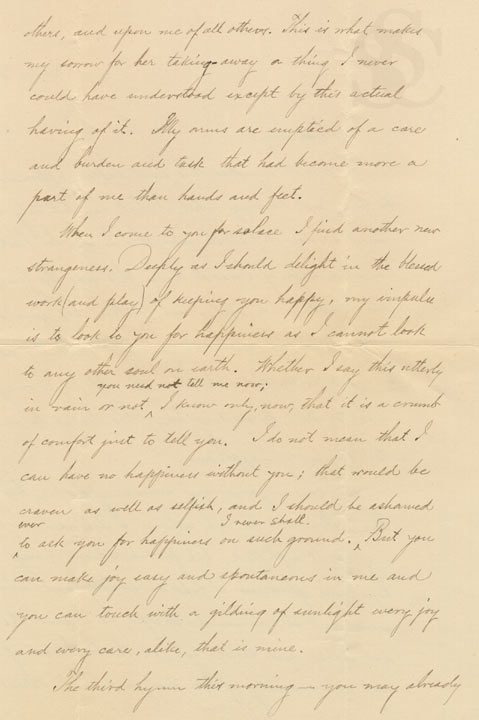 others, and upon me of all others. This is what makes
my sorrow for her taking-away a thing I never
could have understood except by this actual
having of it. My arms are emptied of a care
and burden and task that had become more a
part of me than hands and feet.
When I come to you for solace I find another new
strangeness. Deeply as I should delight in the blessed
work (and play) of keeping you happy, my impulse
is to look to you for happiness as I cannot look
to any other soul on earth. Whether I say this utterly
you need not tell me now;
in vain or not ^ I know only, now, that it is a crumb
of comfort just to tell you. I do not mean that I
can have no happiness without you; that would be
craven as well as selfish, and I should be ashamed
ever I never shall.
^ to ask you for happiness on such ground. ^ But you
can make joy easy and spontaneous in me and
you can touch with a gilding of sunlight every joy
and every care, alike, that is mine.
The third hymn this morning — you may already
SSC